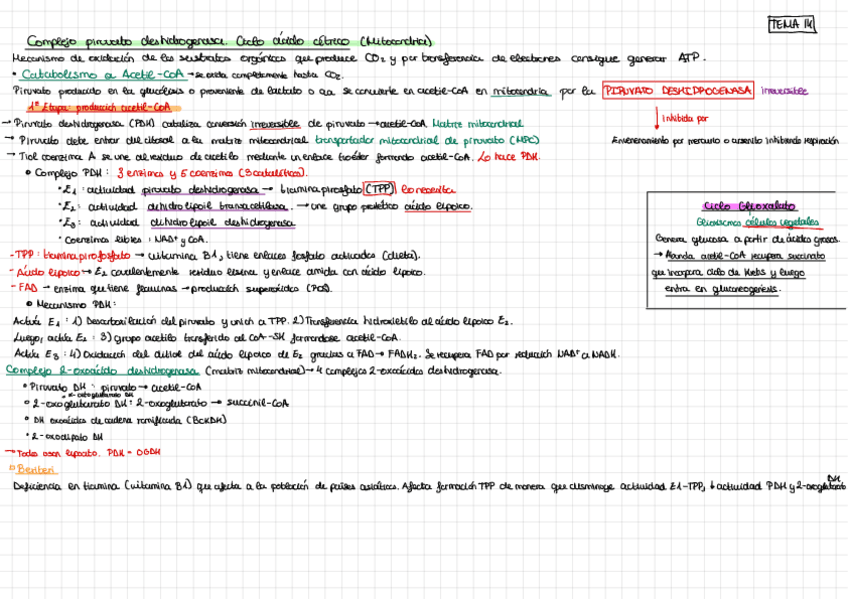 TEMA 14
Complejo piruvato deshidrogenasa. Ciclo ácido cítrico (Mitocondria)
Mecanismo de oxidación de los sustratos orgánicos que produce CO2 y por transferencia de electrones consigue generar ATP.
• Catabolismo a Acetil-CoA → se oxida completamente hasta CO2.
Piruvato producido en la glucólisis o proveniente de lactato o aa se convierte en acetil-CoA en mitocondria por la PIRUVATO DESHIDROGENASA irreversible
1ª Etapa: producción acetil-CoA
Inhibida por
Envenenamiento por mercurio o arsenito inhibiendo respiración
→ Piruvato deshidrogenasa (PDH) cataliza conversión irreversible de piruvato → acetil-CoA. Matriz mitocondrial
→ Piruvato debe entrar del citosol a la matriz mitocondrial transportador mitocondrial de piruvato (MPC)
→ Tiol coenzima A se une al residuo de acetilo mediante un enlace tioéster formando acetil-CoA. Lo hace PDH.
• Complejo PDH: 3 enzimas y 5 coenzimas (3 catalíticas).
• E1: actividad piruvato deshidrogenasa → tiamina pirofosfato (TPP) lo necesita
• E2: actividad dihidrolipoil transacetilasa. → une grupo prostético ácido lipoico.
• E3: actividad dihidrolipoil deshidrogenasa
• Coenzimas libres: NAD+ y CoA.
Ciclo Glioxalato
Glioxisomas células vegetales
Genera glucosa a partir de ácidos grasos.
→ Aunda acetil-CoA recupera succinato
que incorpora ciclo de Krebs y luego
entra en gluconeogénesis.
- TPP: tiamina pirofosfato → vitamina B1, tiene enlaces fosfato activados (dieta).
- Ácido lipoico → E2 covalentemente residuo lisina y enlace amida con ácido lipoico.
- FAD → enzima que tiene flavinas → producción superóxidos (ROS).
• Mecanismo PDH:
Actúa E1: 1) Descarboxilación del piruvato y unión a TPP. 2) Transferencia hidroxietilo al ácido lipoico E2.
Luego, actúa E2: 3) grupo acetilo transferido al CoA-SH formándose acetil-CoA.
Actúa E3: 4) Oxidación del ditiol del ácido lipoico de E2 gracias a FAD → FADH2. Se recupera FAD por reducción NAD+ a NADH.
Complejo 2-oxoácido deshidrogenasa (matriz mitocondrial) → 4 complejos 2-oxoácidos deshidrogenasa.
• Piruvato DH: piruvato → acetil-CoA
α-cetoglutarato DH
• 2-oxoglutarato DH: 2-oxoglutarato → succinil-CoA
• DH oxoácidos de cadena ramificada (BCKDH)
• 2-oxoadipato DH
→ Todos usan lipoato. PDH - OGDH
Beriberi
Deficiencia en tiamina (vitamina B1) que afecta a la población de países asiáticos. Afecta formación TPP de manera que disminuye actividad E1-TPP, ↓ actividad PDH y 2-oxoglutarato DH